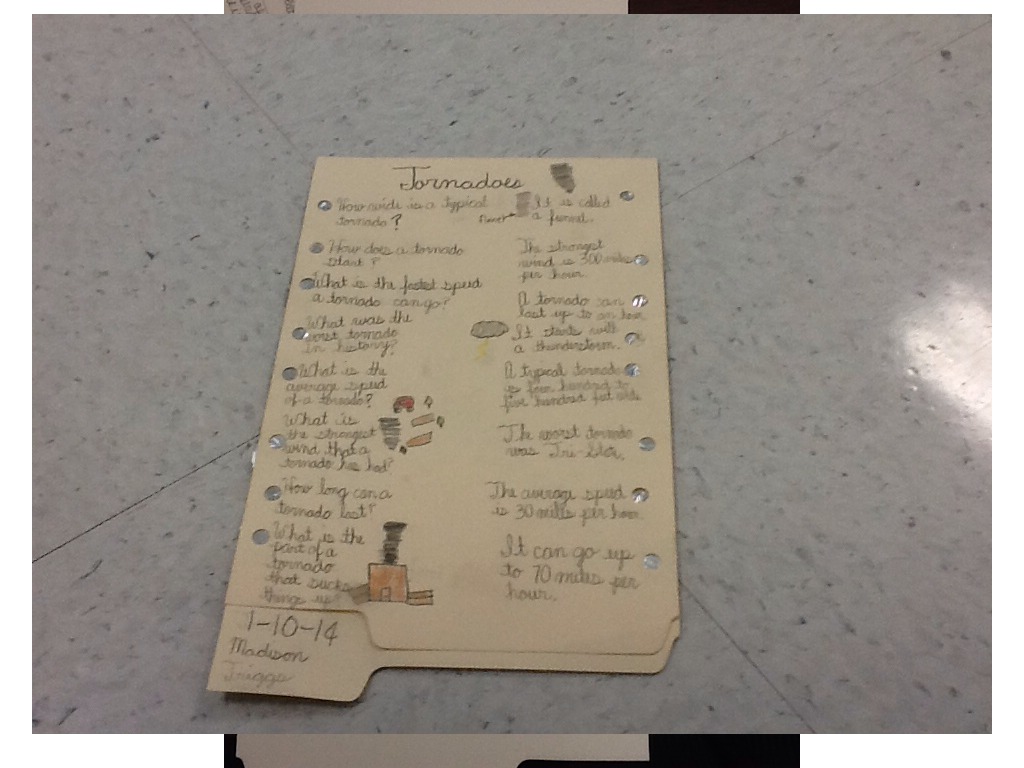 Tornadoes
How wide is a typical
tornado?
How does a tornado
start?
What is the fastest speed
a tornado can go?
What was the
worst tornado
in history?
What is the
average speed
of a tornado?
What is
the strongest
wind that a
tornado has had?
How long can a
tornado last?
What is the
part of a
tornado
that sucks
things up?
It is called
a funnel.
The strongest
wind is 300 miles
per hour
A tornado can
last up to an hour
It starts with
a thunderstorm.
A typical tornado
is four hundred to
five hundred feet
The worst tornado
was
The average speed
is 30 miles per hour
It can go up
to 70 miles per
hour.
1-10-14
Madison
Triggs